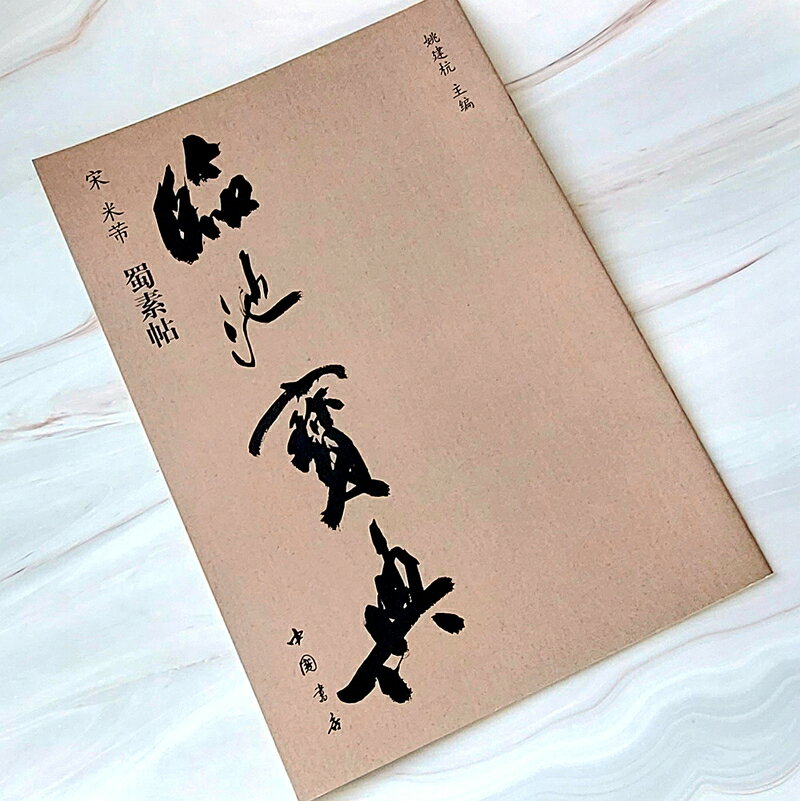 姚建杭 主编
臨池寶典
宋 米芾 蜀素帖
中国书店